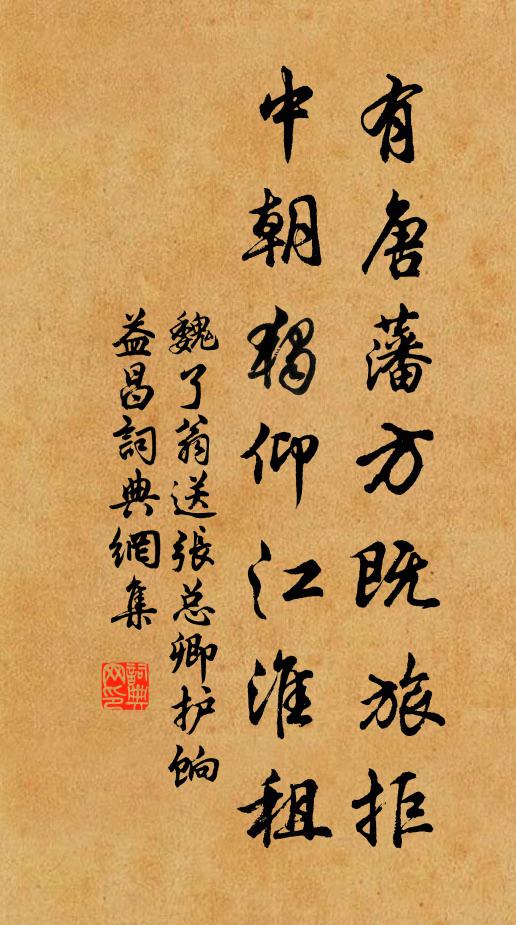 有唐藩方既旅拒
中朝独仰江淮租
魏了翁送張总卿护餉
益昌詞典網集
詞典网印